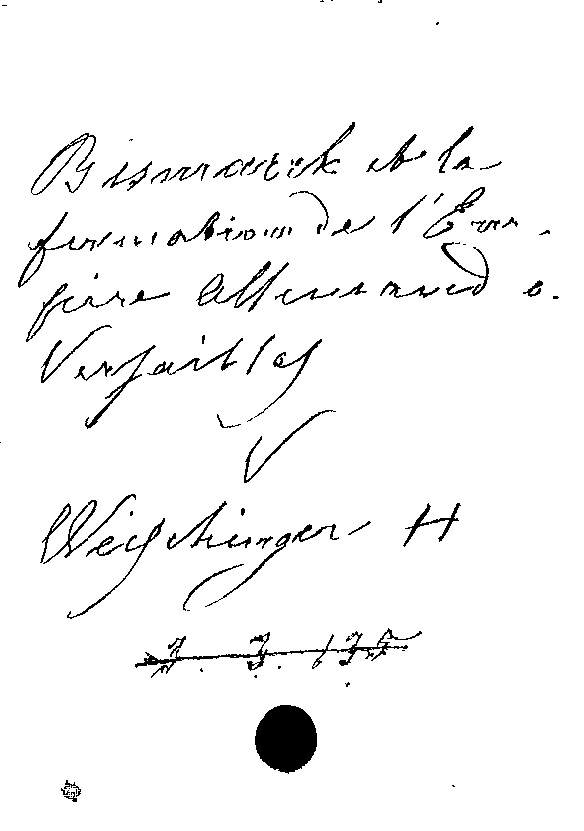 Bismarck et la
formation de l'Em-
pire Allemand a
Versailles
V
Welschinger H
3. 3. 135